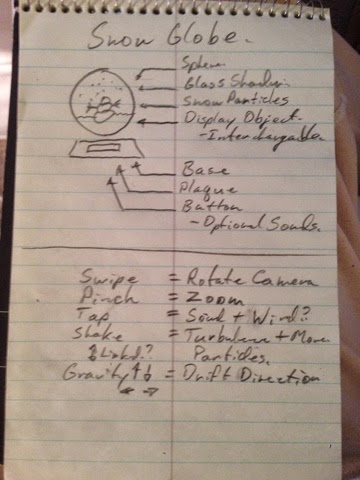 Snow Globe.
Sphere
Glass Shader.
Snow Particles
Display Object.
- Interchangable.
Base
Plaque
Button
- Optional Sounds.
Swipe = Rotate Camera
Pinch = Zoom
Tap = Sound + Wind?
Shake = Turbulence + More
Linked? Particles.
Gravity ↑↓ = Drift Direction
← →